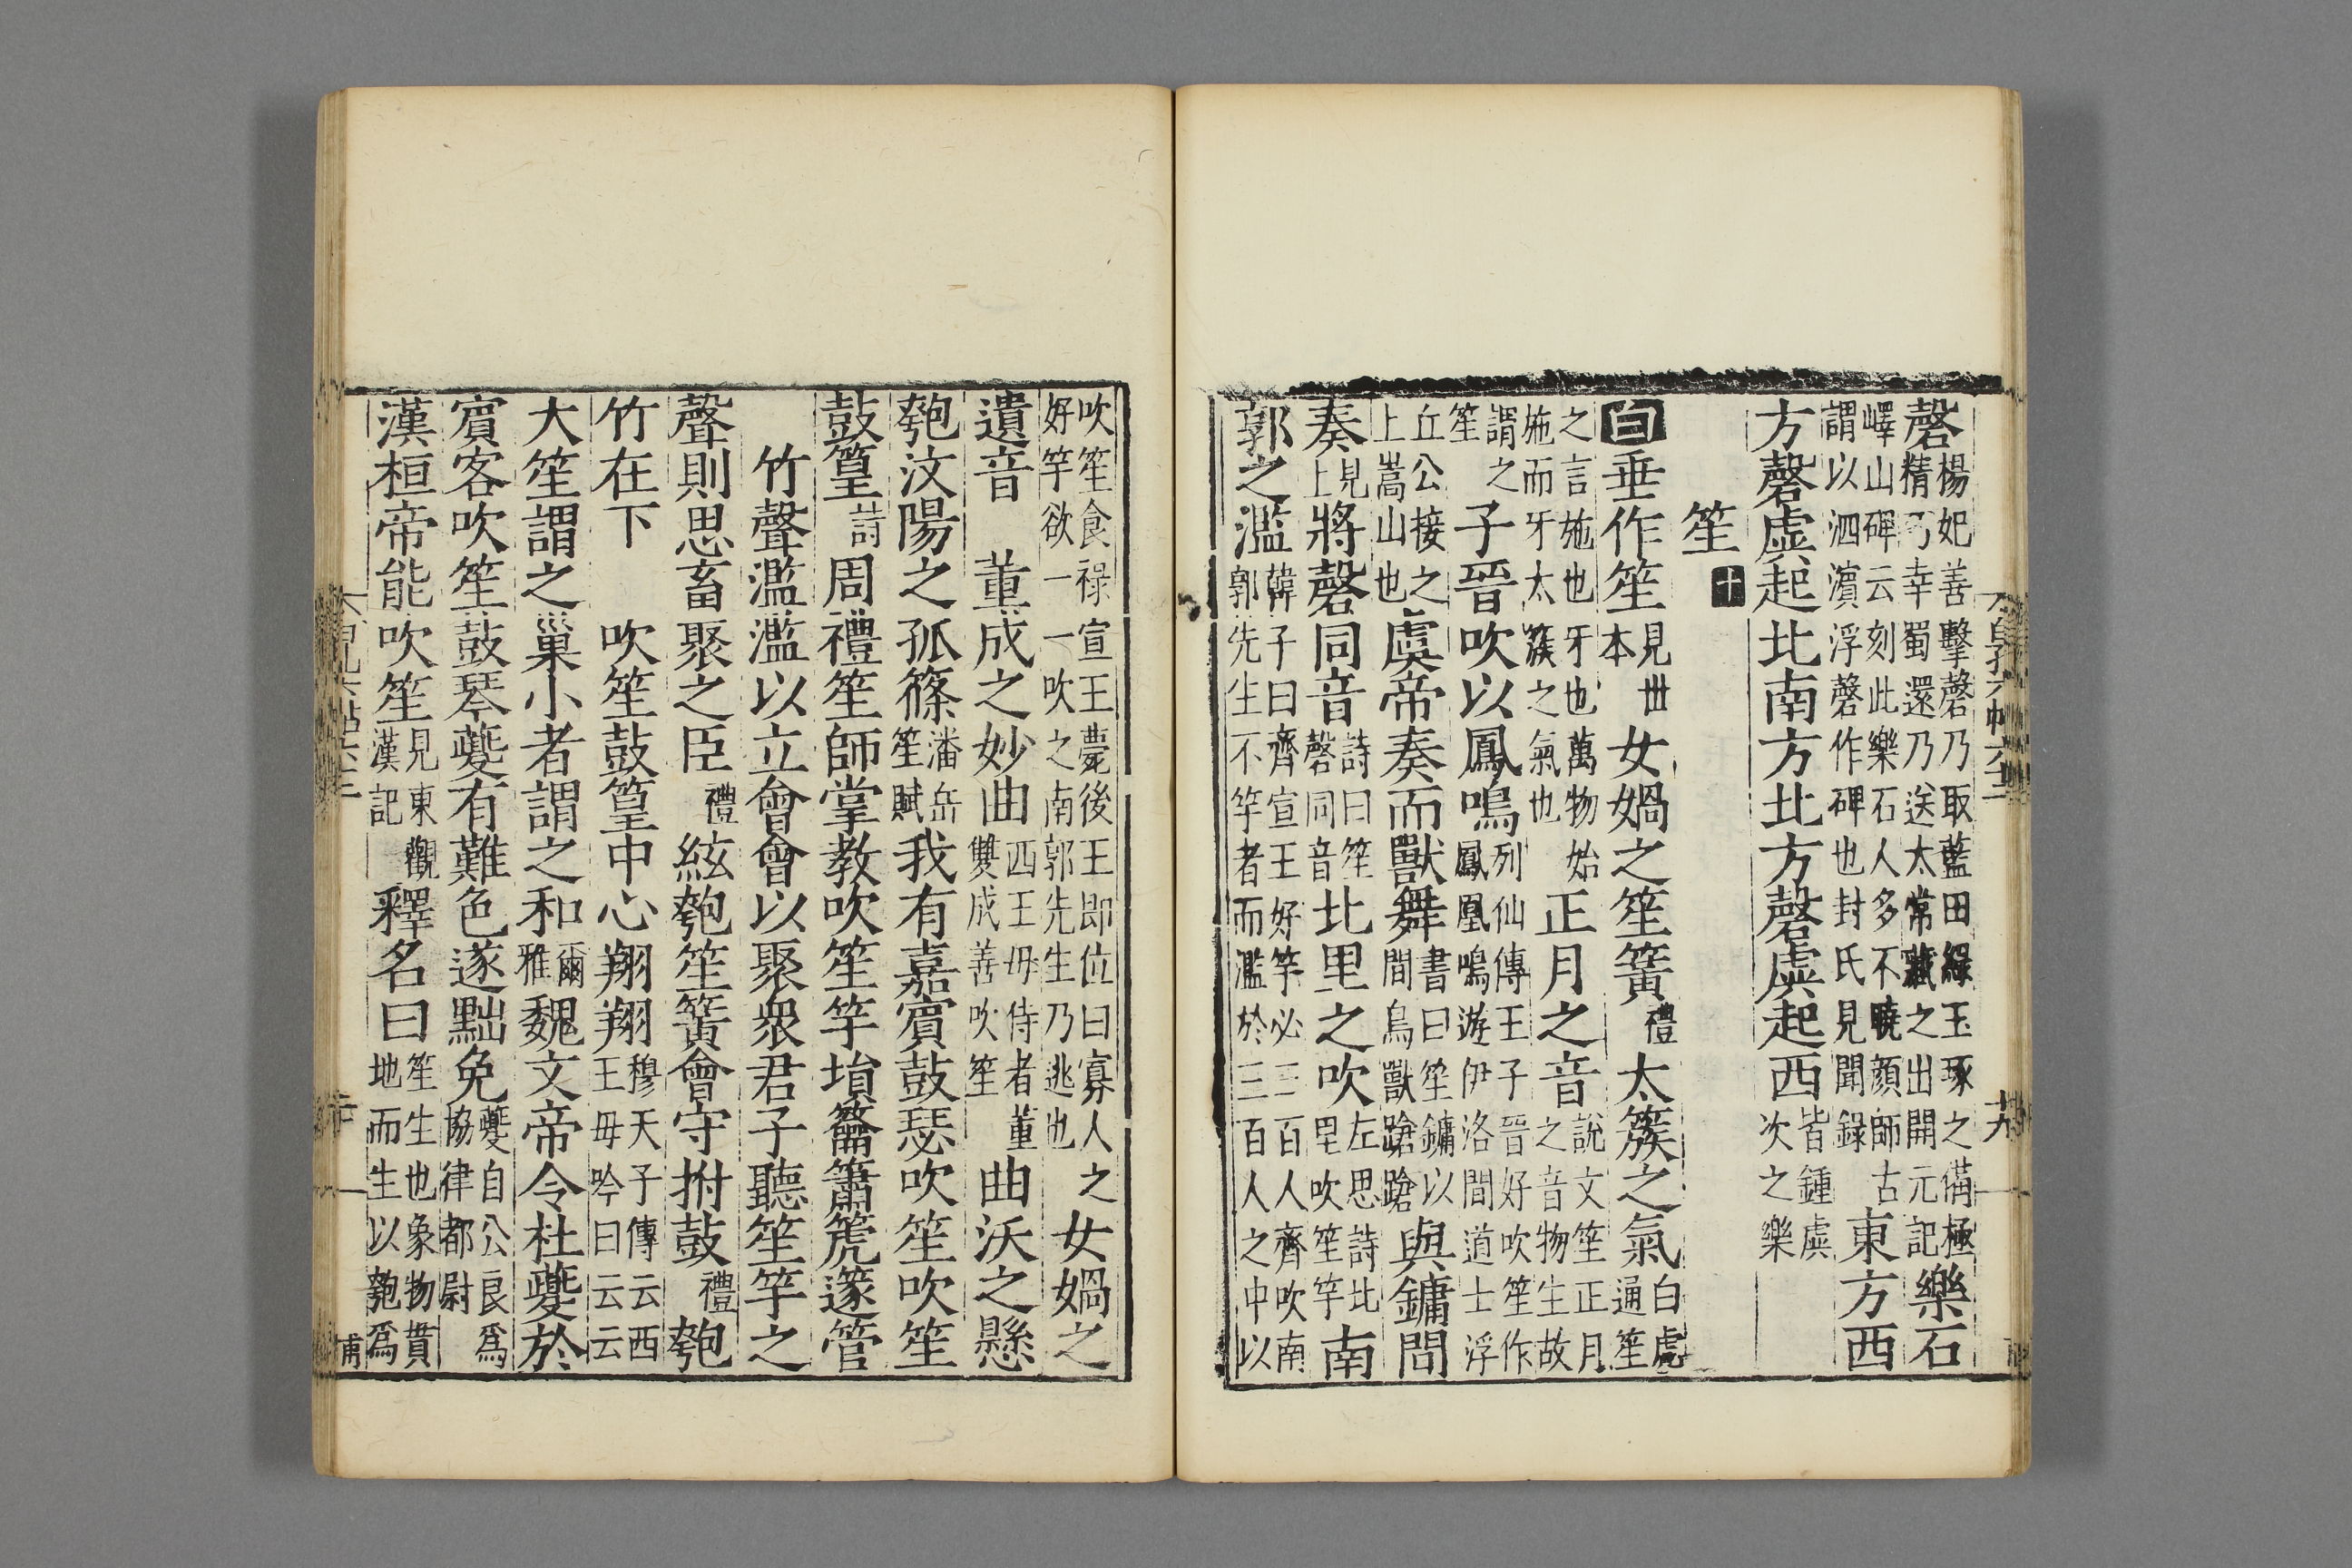 磬楊妃善擊磬乃取藍田綠玉琢之備極精巧幸蜀還乃送太常藏之出開元記樂石
嶧山碑云刻此樂石人多不曉顏師古謂以泗濱浮磬作碑也封氏見聞錄東方西
方磬虡起北南方北方磬虡起西皆鍾虡次之樂
笙十
白垂作笙見世本女媧之笙簧禮太簇之氣白虎通笙
之言施也牙也萬物始施而牙太簇之氣也正月之音說文笙正月之音物生故
謂之笙子晉吹以鳳鳴列仙傳王子晉好吹笙作鳳凰鳴游伊洛間道士浮
丘公接之上嵩山也虞帝奏而獸舞書曰笙鏞以間鳥獸蹌蹌與鏞間
奏見上將磬同音詩曰笙磬同音北里之吹左思詩北里吹笙竽南
郭之濫韓子曰齊宣王好竽必三百人齊吹南郭先生不竽者而濫於三百人之中以
吹笙食祿宣王薨後王即位曰寡人之好竽欲一一吹之南郭先生乃逃也女媧之
遺音 董成之妙曲西王母侍者董雙成善吹笙曲沃之懸
匏汶陽之孤篠潘岳笙賦我有嘉賓鼓瑟吹笙吹笙
鼓篁詩周禮笙師掌教吹笙竽塤籥簫篪篴管
竹聲濫濫以立會會以聚衆君子聽笙竽之
聲則思畜聚之臣禮絃匏笙簧會守拊鼓禮匏
竹在下 吹笙鼓篁中心翔翔穆天子傳云西王母吟曰云云
大笙謂之巢小者謂之和爾雅魏文帝令杜夔於
賓客吹笙鼓琴夔有難色遂黜免夔自公良爲協律都尉
漢桓帝能吹笙見東觀漢記釋名曰笙生也象物貫地而生以匏爲